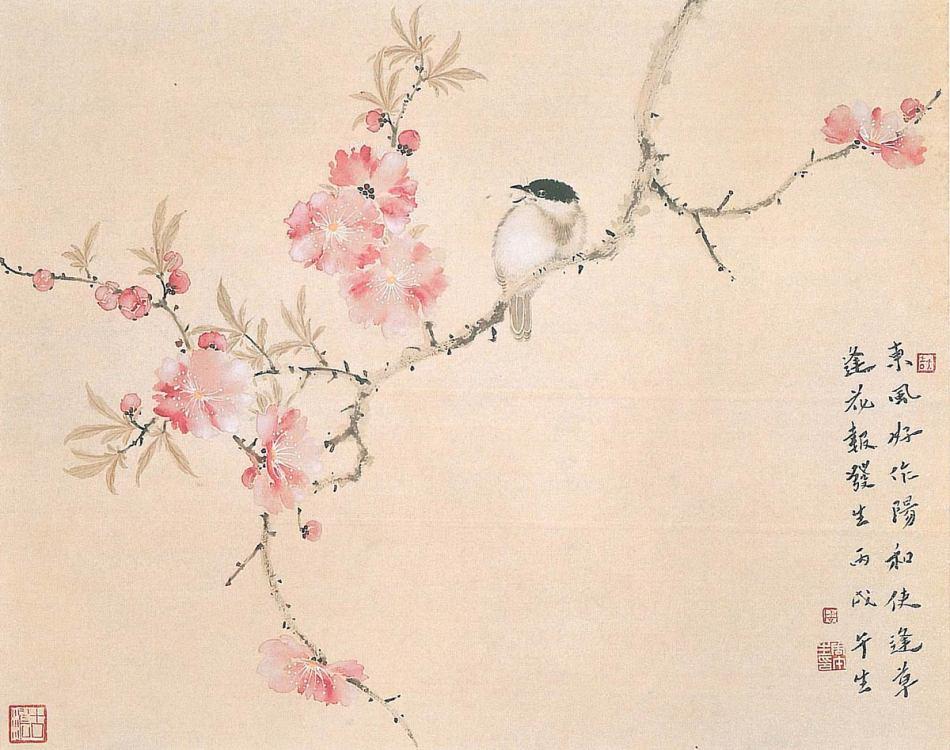 東風好作陽和使逢草
逢花報發生丙戌生